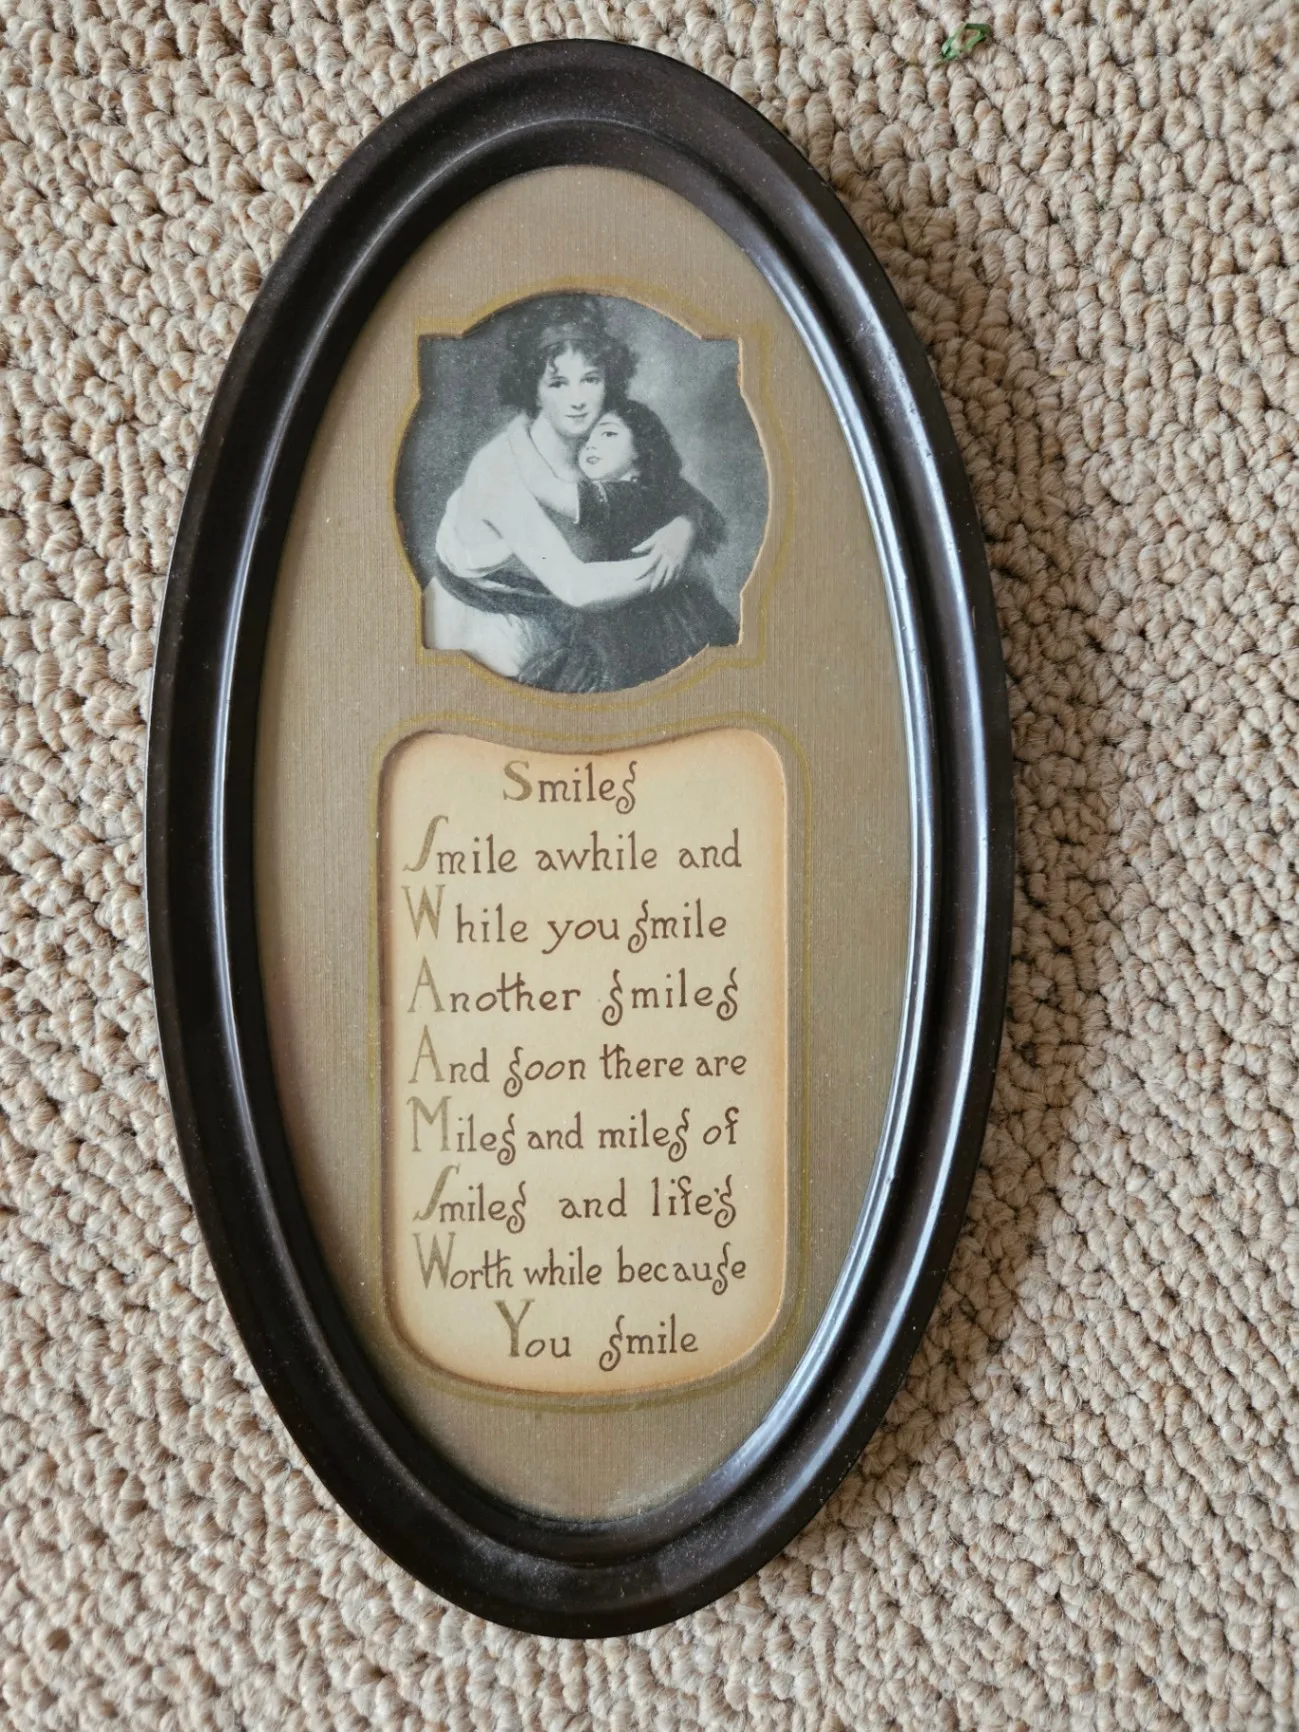 Smiles
Smile awhile and
While you smile
Another smiles
And soon there are
Miles and miles of
Smiles and life's
Worth while because
You smile